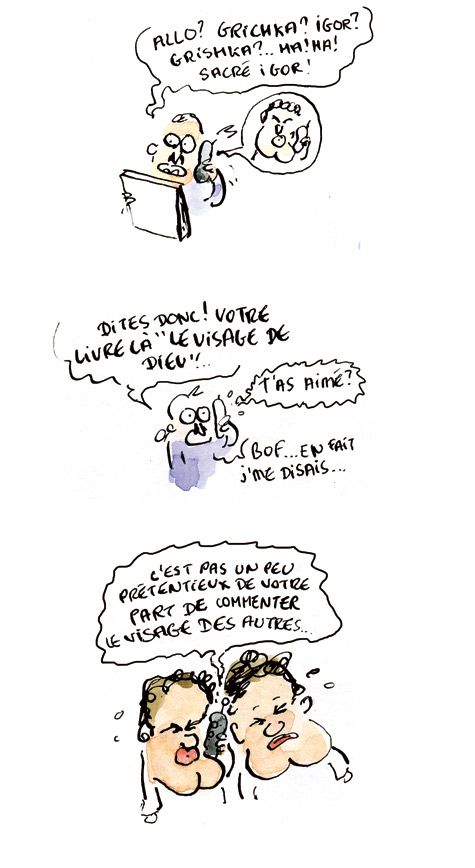 ALLO? GRICHKA? IGOR?
GRISHKA?.. HA! HA!
SACRÉ IGOR!
DITES DONC! VOTRE
LIVRE LÀ "LE VISAGE DE
DIEU"...
T'AS AIMÉ?
BOF... EN FAIT
J'ME DISAIS...
C'EST PAS UN PEU
PRÉTENTIEUX DE VOTRE
PART DE COMMENTER
LE VISAGE DES AUTRES...